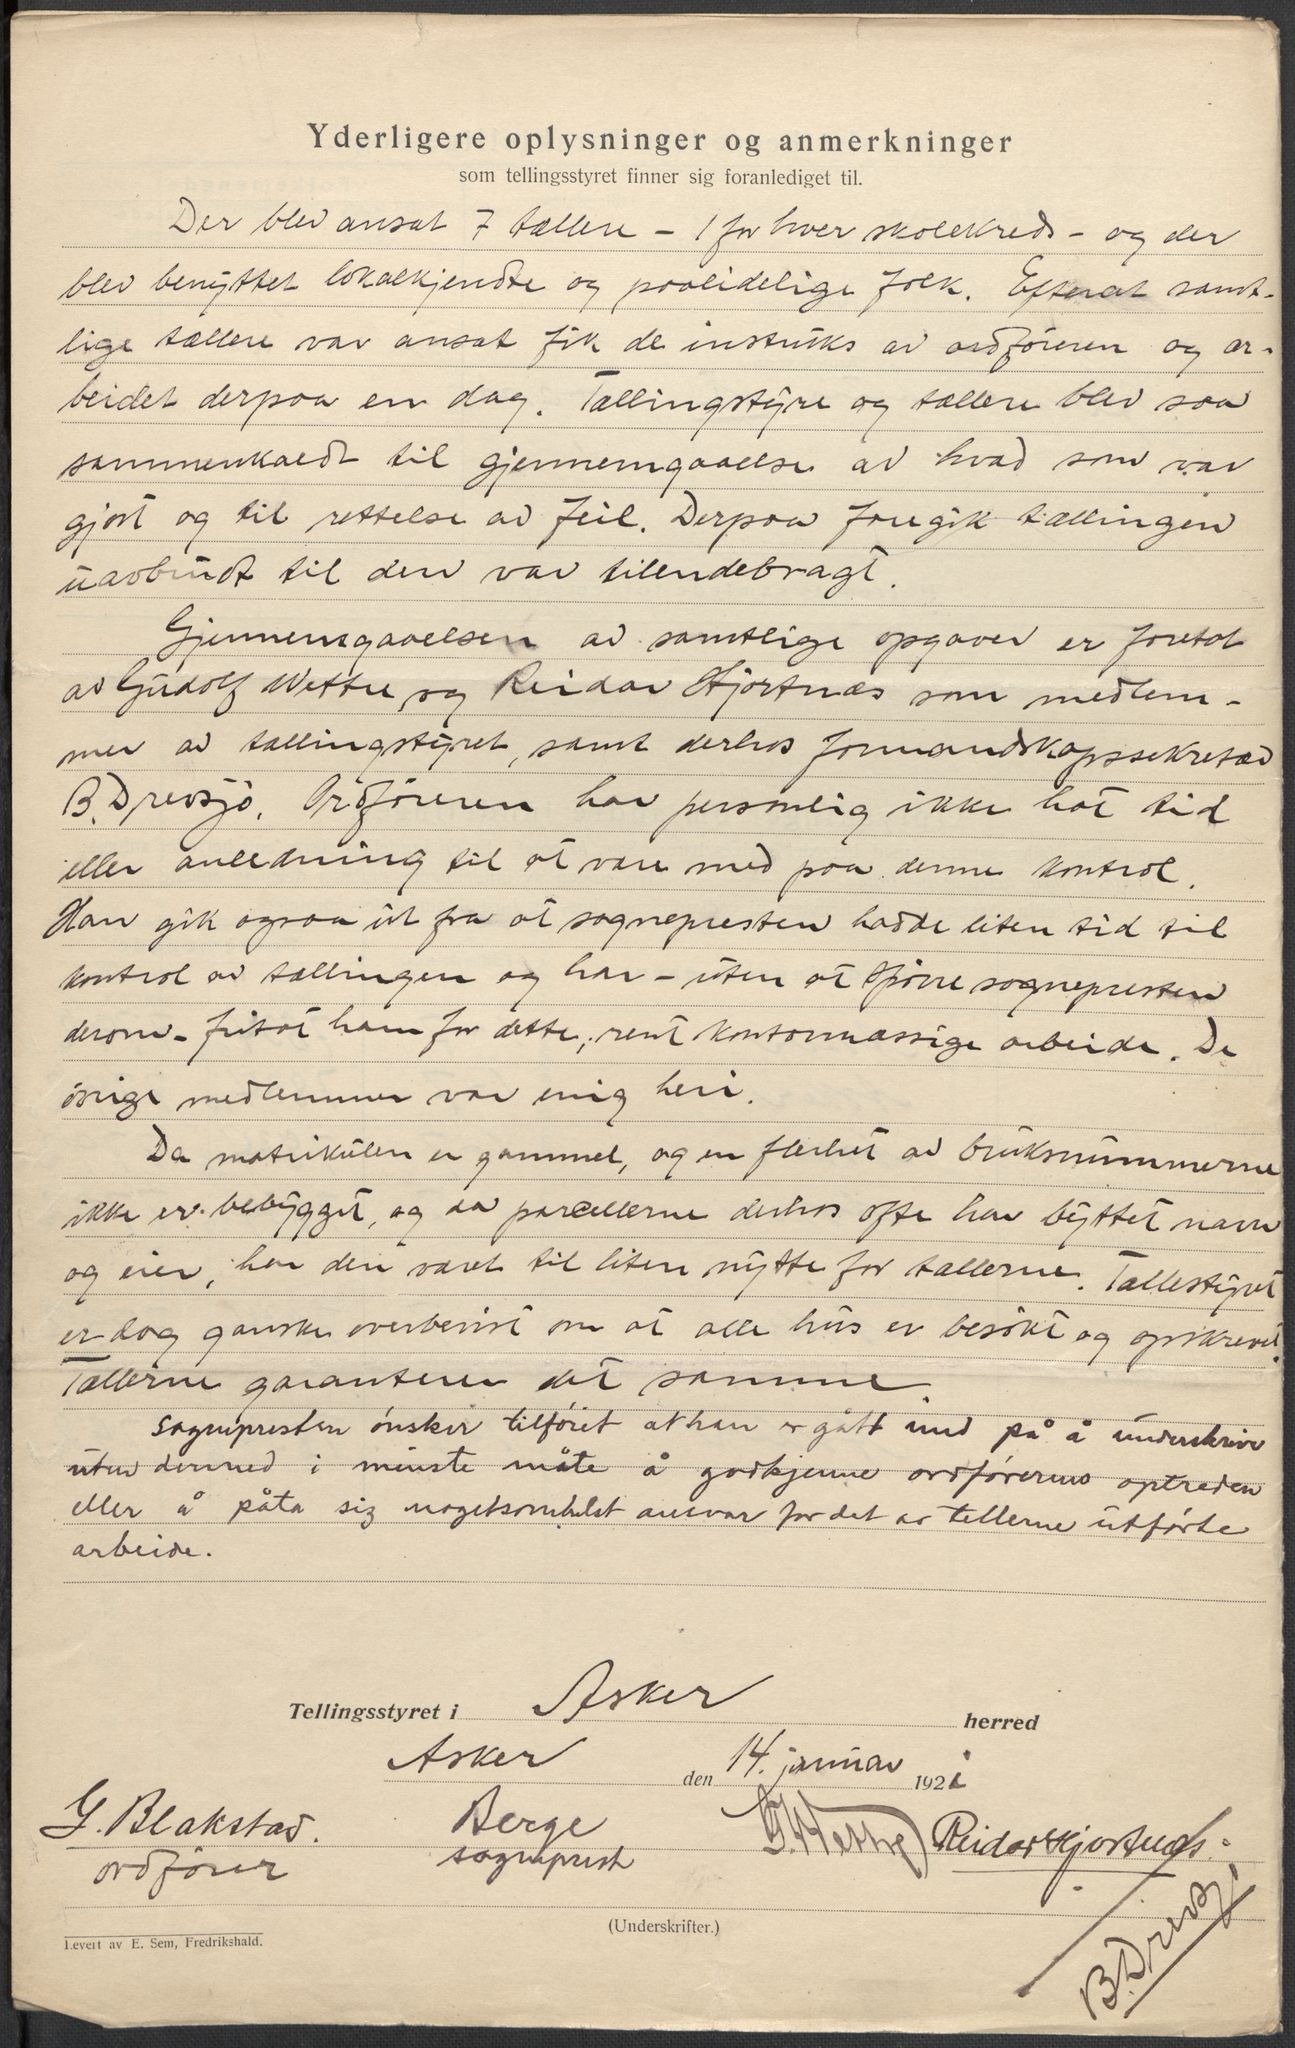 Yderligere oplysninger og anmerkninger
som tellingsstyret finner sig foranlediget til.
Der blev ansat 7 tællere - 1 for hver skolekreds - og der
blev benyttet lokalkjendte og paalidelige folk. Efterat samt-
lige tællere var ansat fik de instruks av ordføreren og ar-
beidet derpaa en dag. Tællingstyre og tællere blev saa
sammenkaldt til gjennemgaaelse av hvad som var
gjort og til rettelse av feil. Derpaa foregik tællingen
uavbrudt til den var tilendebragt.
Gjennemgaaelsen av samtlige opgaver er foretat
av Gudolf Wettre og Reidar Hjortnæs som medlem-
mer av tællingstyret, samt derhos formandskapssekretær
B. Drevsjø. Ordføreren har personlig ikke hat tid
eller anledning til at være med paa denne kontrol.
Han gik ogsaa ut fra at sognepresten hadde liten tid til
kontrol av tællingen og har - uten at spørre sognepresten
derom - fritat ham for dette, rent kontormæssige arbeide. De
øvrige medlemmer var enig heri.
Da matrikulen er gammel, og en flerhet av bruksnummerne
ikke er bebygget, og da parcellerne derhos ofte har byttet navn
og eier, har den været til liten nytte for tællerne. Tællestyret
er dog ganske overbevist om at alle hus er besøkt og opskrevet.
Tællerne garanterer det samme.
Sognepresten ønsker tilføiet at han er gått inn på å underskrive
uten dermed i minste måte å godkjenne ordførerens optreden
eller å påta sig nogetsomhelst ansvar for det av tellerne utførte
arbeide.
Tellingsstyret i Asker herred
Asker den 14. januar 1921
G. Blakstad. Berge G. Wettre Reidar Hjortnæs.
ordfører sogneprest
B. Drevsjø
(Underskrifter.)
Levert av E. Sem, Fredrikshald.